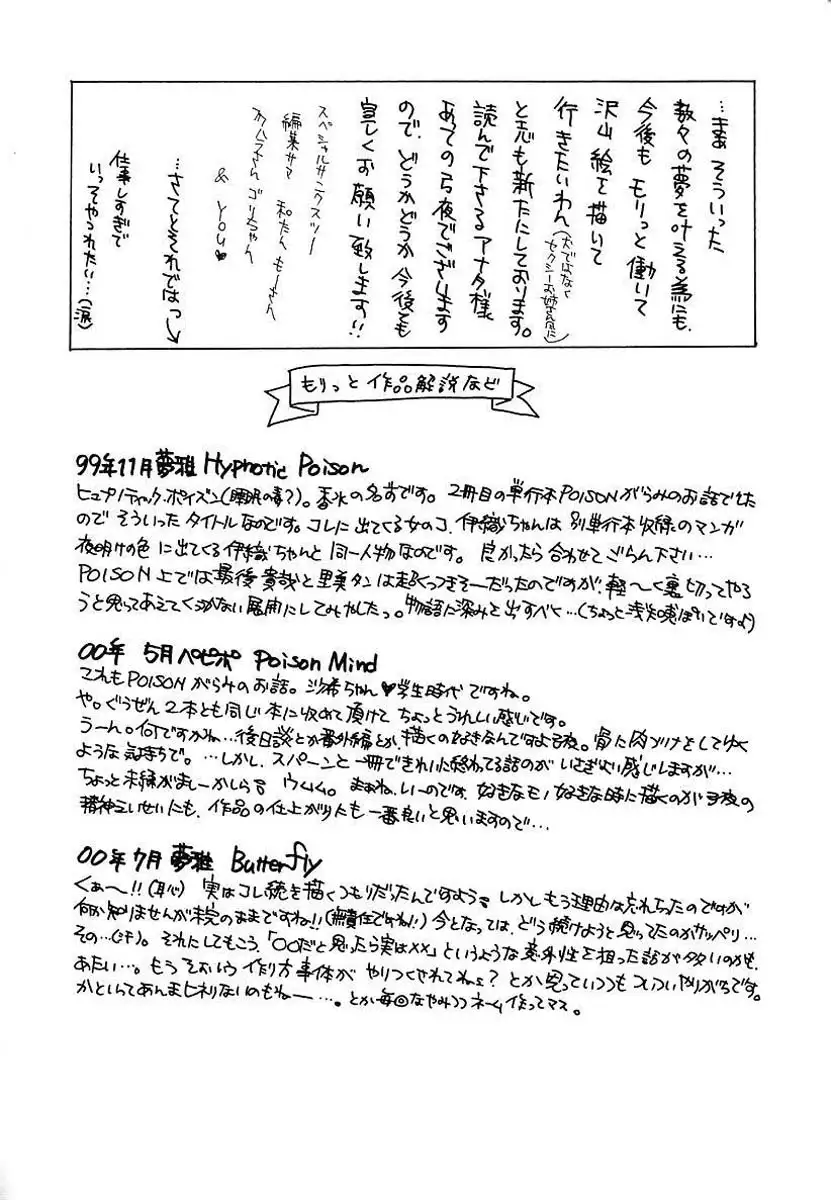 …まあ そういった
数々の夢を叶える為にも、
今後も モリっと 働いて
沢山 絵を描いて
行きたいわん(犬ではなく
セクシーお姉さん風に)
と志も新たにしております。
読んで下さるアナタ様
あっての弓夜でございます
ので、どうかどうか 今後とも
宜しくお願い致します!!
スペシャルサンクスツー
編集サマ 和たん もーさん
さん ゴリちゃん
& YOU♥
…さてとそれではっ→
仕事しすぎで
いっそやつれたい…(涙)
もりっと 作品解説など
99年11月夢雅 Hypnotic Poison
ヒュプノティック・ポイズン(睡眠の毒?)。香水の名前です。2冊目の単行本POISONがらみのお話でした
ので そういった タイトルなのです。コレに出てくる女のコ、伊織ちゃんは 別単行本収録のマンガ
夜明けの色 に出てくる伊織ちゃんと 同一人物なのです。良かったら 合わせて ごらん下さい…
POISON 上では最後 貴哉と 里美タンは超くっつきそーだったのですが、軽〜く裏切ってやろ
うと思ってあえてくっつかない展開にしてみやしたっ。物語に深みを出すべく…(ちょっと浅知恵ぽいですよ)
00年 5月ペピポ Poison Mind
これもPOISONがらみのお話。沙希ちゃん♥学生時代 ですね。
や。ぐうぜん 2本とも同じ 本に収めて頂けて ちょっとうれしい感じです。
うーん。何ですかね…後日談とか番外編とか、描くの好きなんですよ弓夜。骨に肉づけをしてゆく
ような 気持ちで。…しかし、スパーンと 一冊できれいに終わってる話のが いさぎよい感じしますが…
ちょっと未練がましーかしら。 ウムム。まぁね、いーのです。好きなモノ 好きな時に描くのが 弓夜の
精神えいせいにも、作品の仕上がりにも 一番良いと思いますので…
00年7月 夢雅 Butterfly
くぁ〜!!(恥) 実はコレ続き描くつもりだったんですよう。しかしもう理由は忘れちったのですが
何か知りませんが未完のままですね!!(無責任ですね!) 今となっては、どう続けようと思ってたのかサッパリ…
その…(汗)。それにしてもこう、「○○だと思ったら実は××」というような 意外性を狙った話が多いのかも、
あたい…。もう そおいう 作り方事体が やりつくされてねぇ? とか思っていつつも ついついやりがちです。
かといってあんまヒネリないのもねー…。とか毎回なやみつつ ネーム作ってマス。